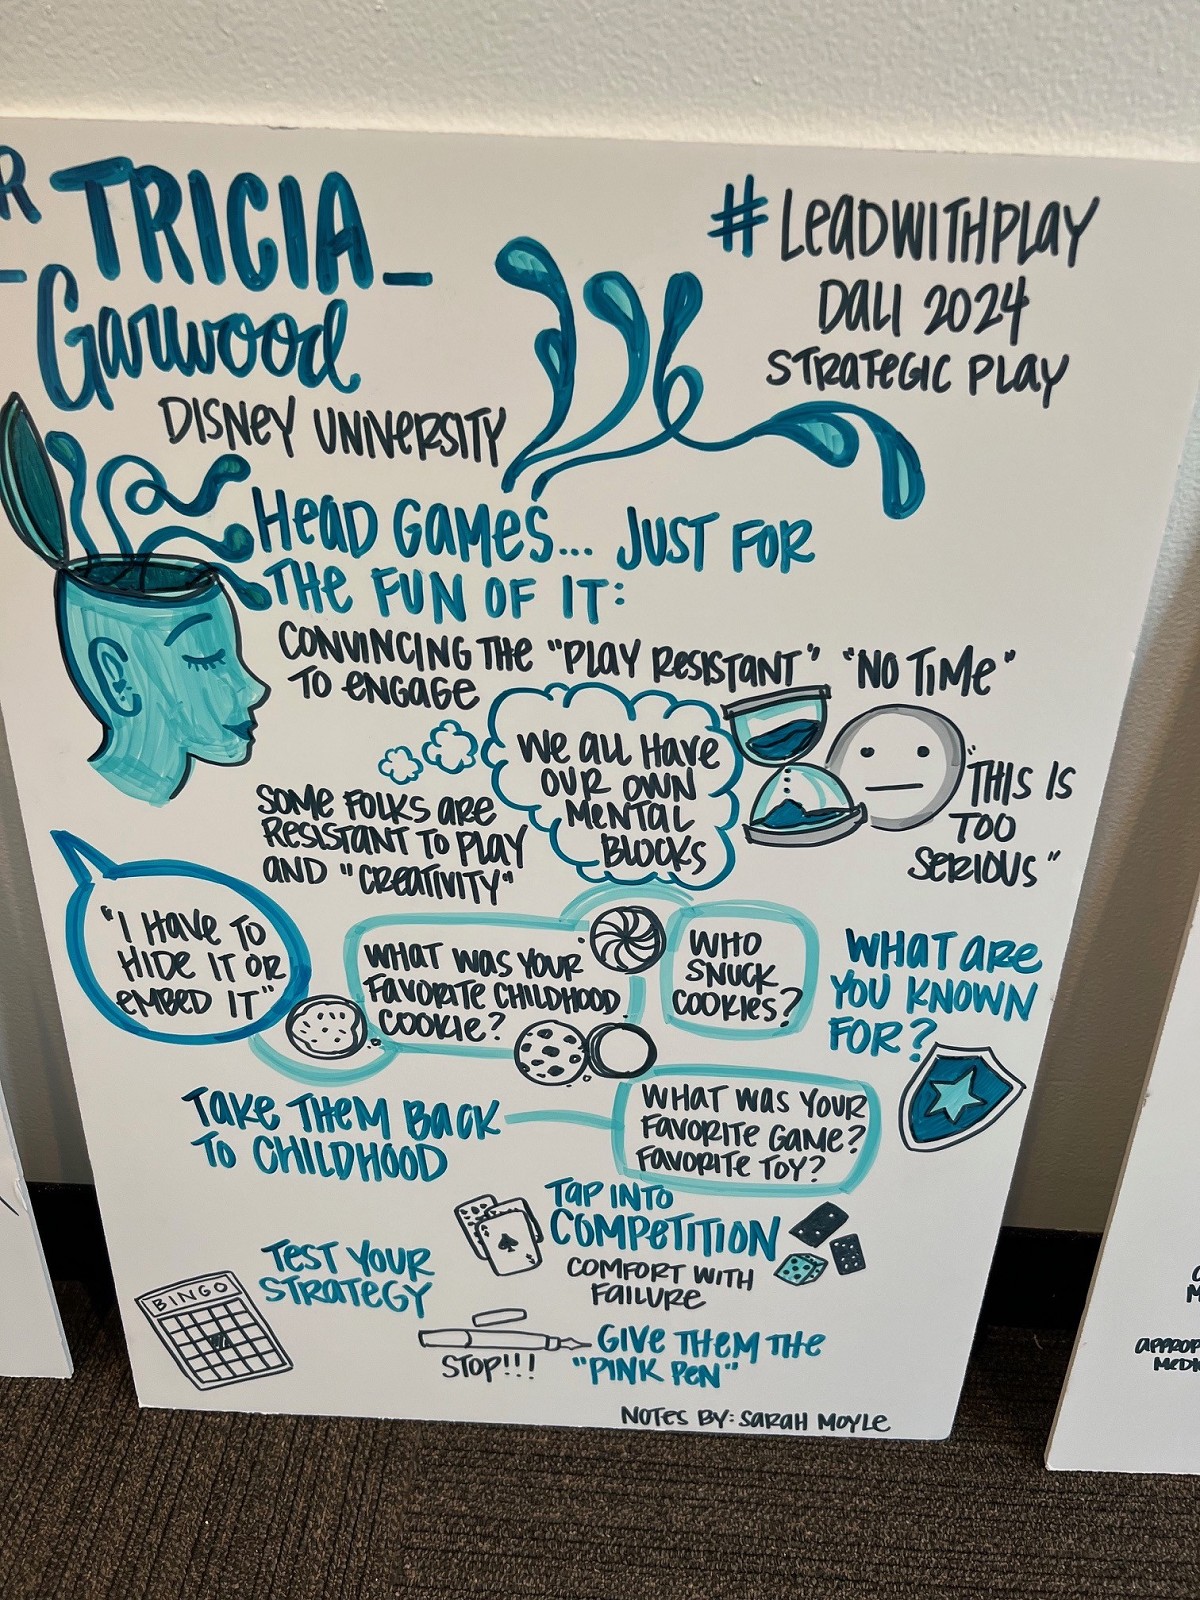 R TRICIA
Garwood
DISNEY UNIVERSITY
#LEADWITHPLAY
DALI 2024
STRATEGIC PLAY
HEAD GAMES... JUST FOR
THE FUN OF IT:
CONVINCING THE "PLAY RESISTANT"
TO ENGAGE
"NO TIME"
WE ALL HAVE
OUR OWN
MENTAL
BLOCKS
"THIS IS
TOO
SERIOUS"
SOME FOLKS ARE
RESISTANT TO PLAY
AND "CREATIVITY"
"I HAVE TO
HIDE IT OR
EMBED IT"
WHAT WAS YOUR
FAVORITE CHILDHOOD
COOKIE?
WHO
SNUCK
COOKIES?
WHAT ARE
YOU KNOWN
FOR?
TAKE THEM BACK
TO CHILDHOOD
WHAT WAS YOUR
FAVORITE GAME?
FAVORITE TOY?
TAP INTO
COMPETITION
COMFORT WITH
FAILURE
TEST YOUR
STRATEGY
BINGO
STOP!!!
GIVE THEM THE
"PINK PEN"
NOTES BY: SARAH MOYLE